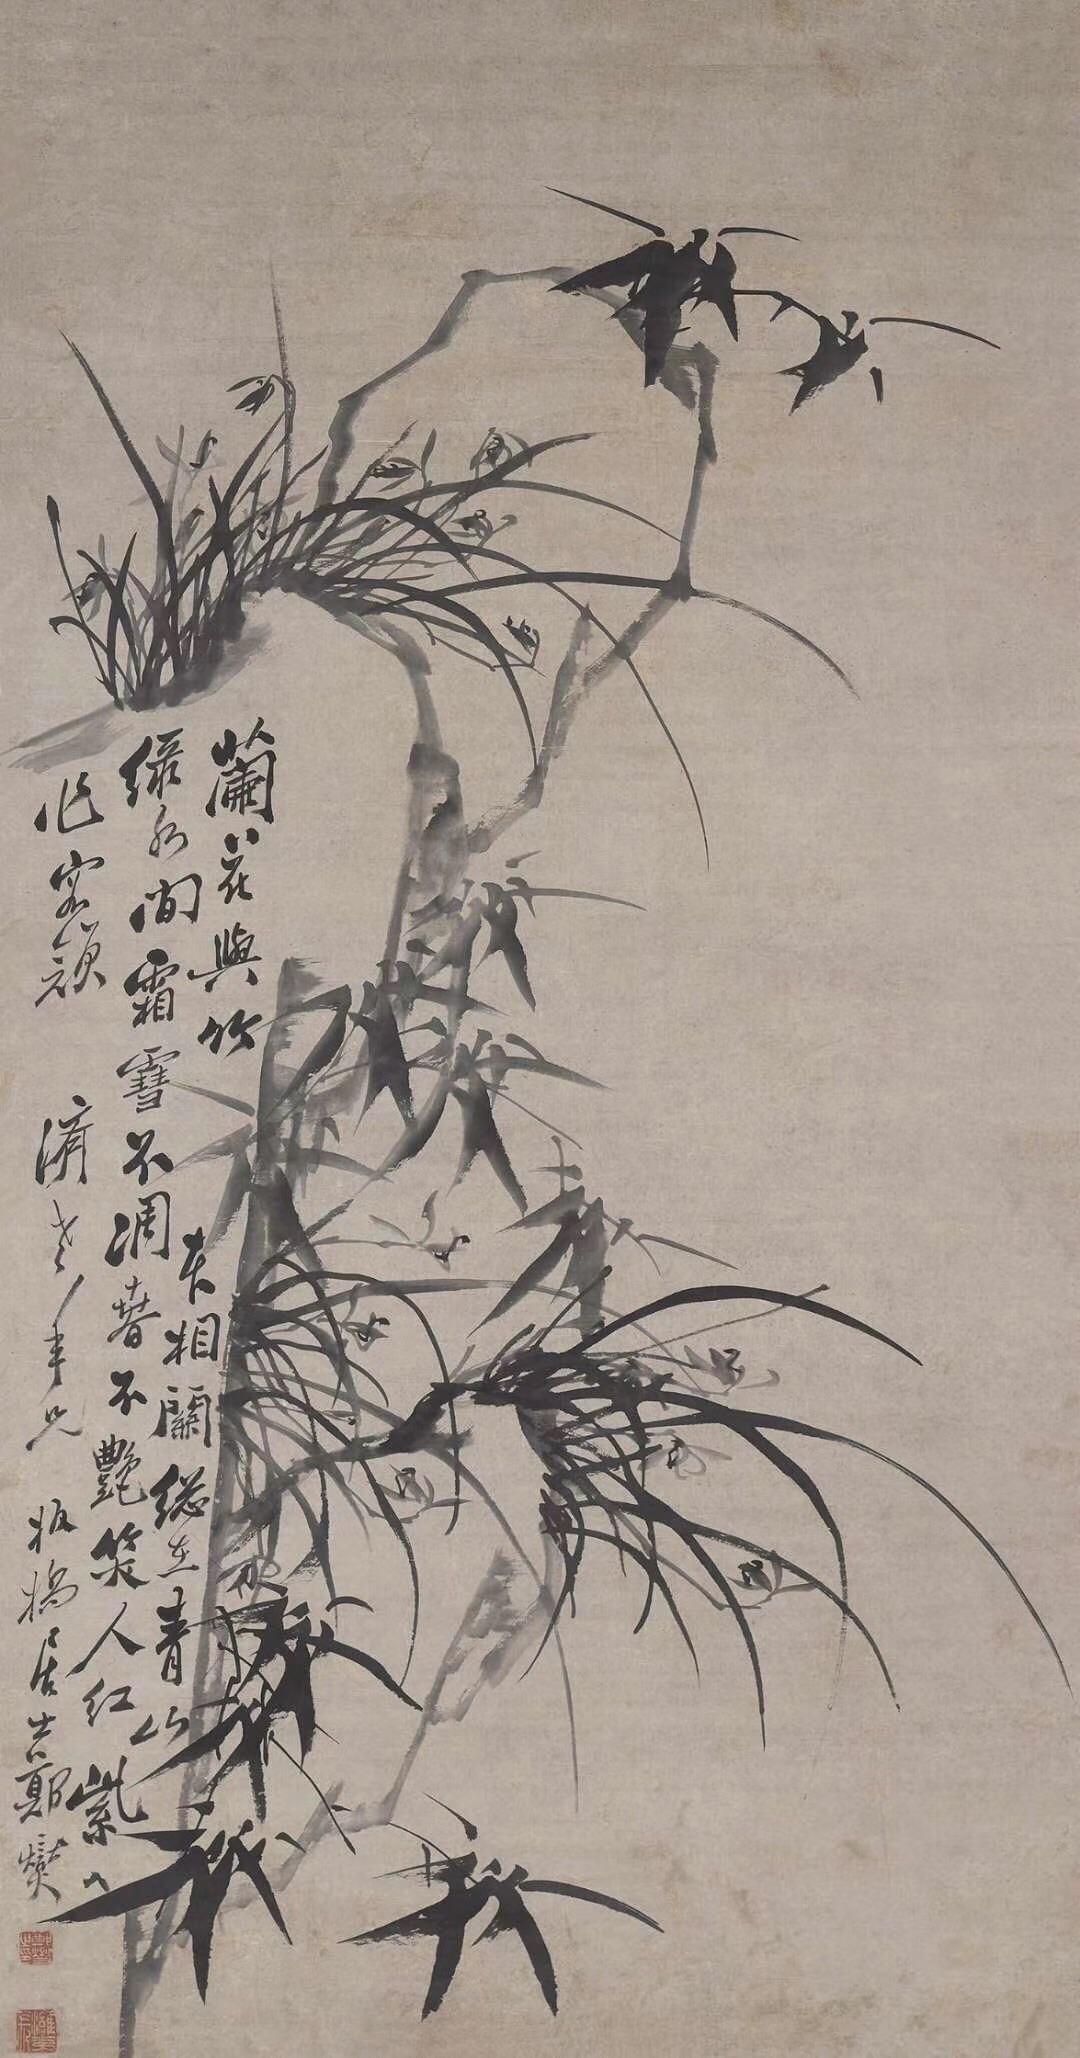 蘭花與竹
本相關總在青山
綠水間霜雪不凋春不艷笑人紅紫
作客顏
濟老年兄
板橋居士鄭燮